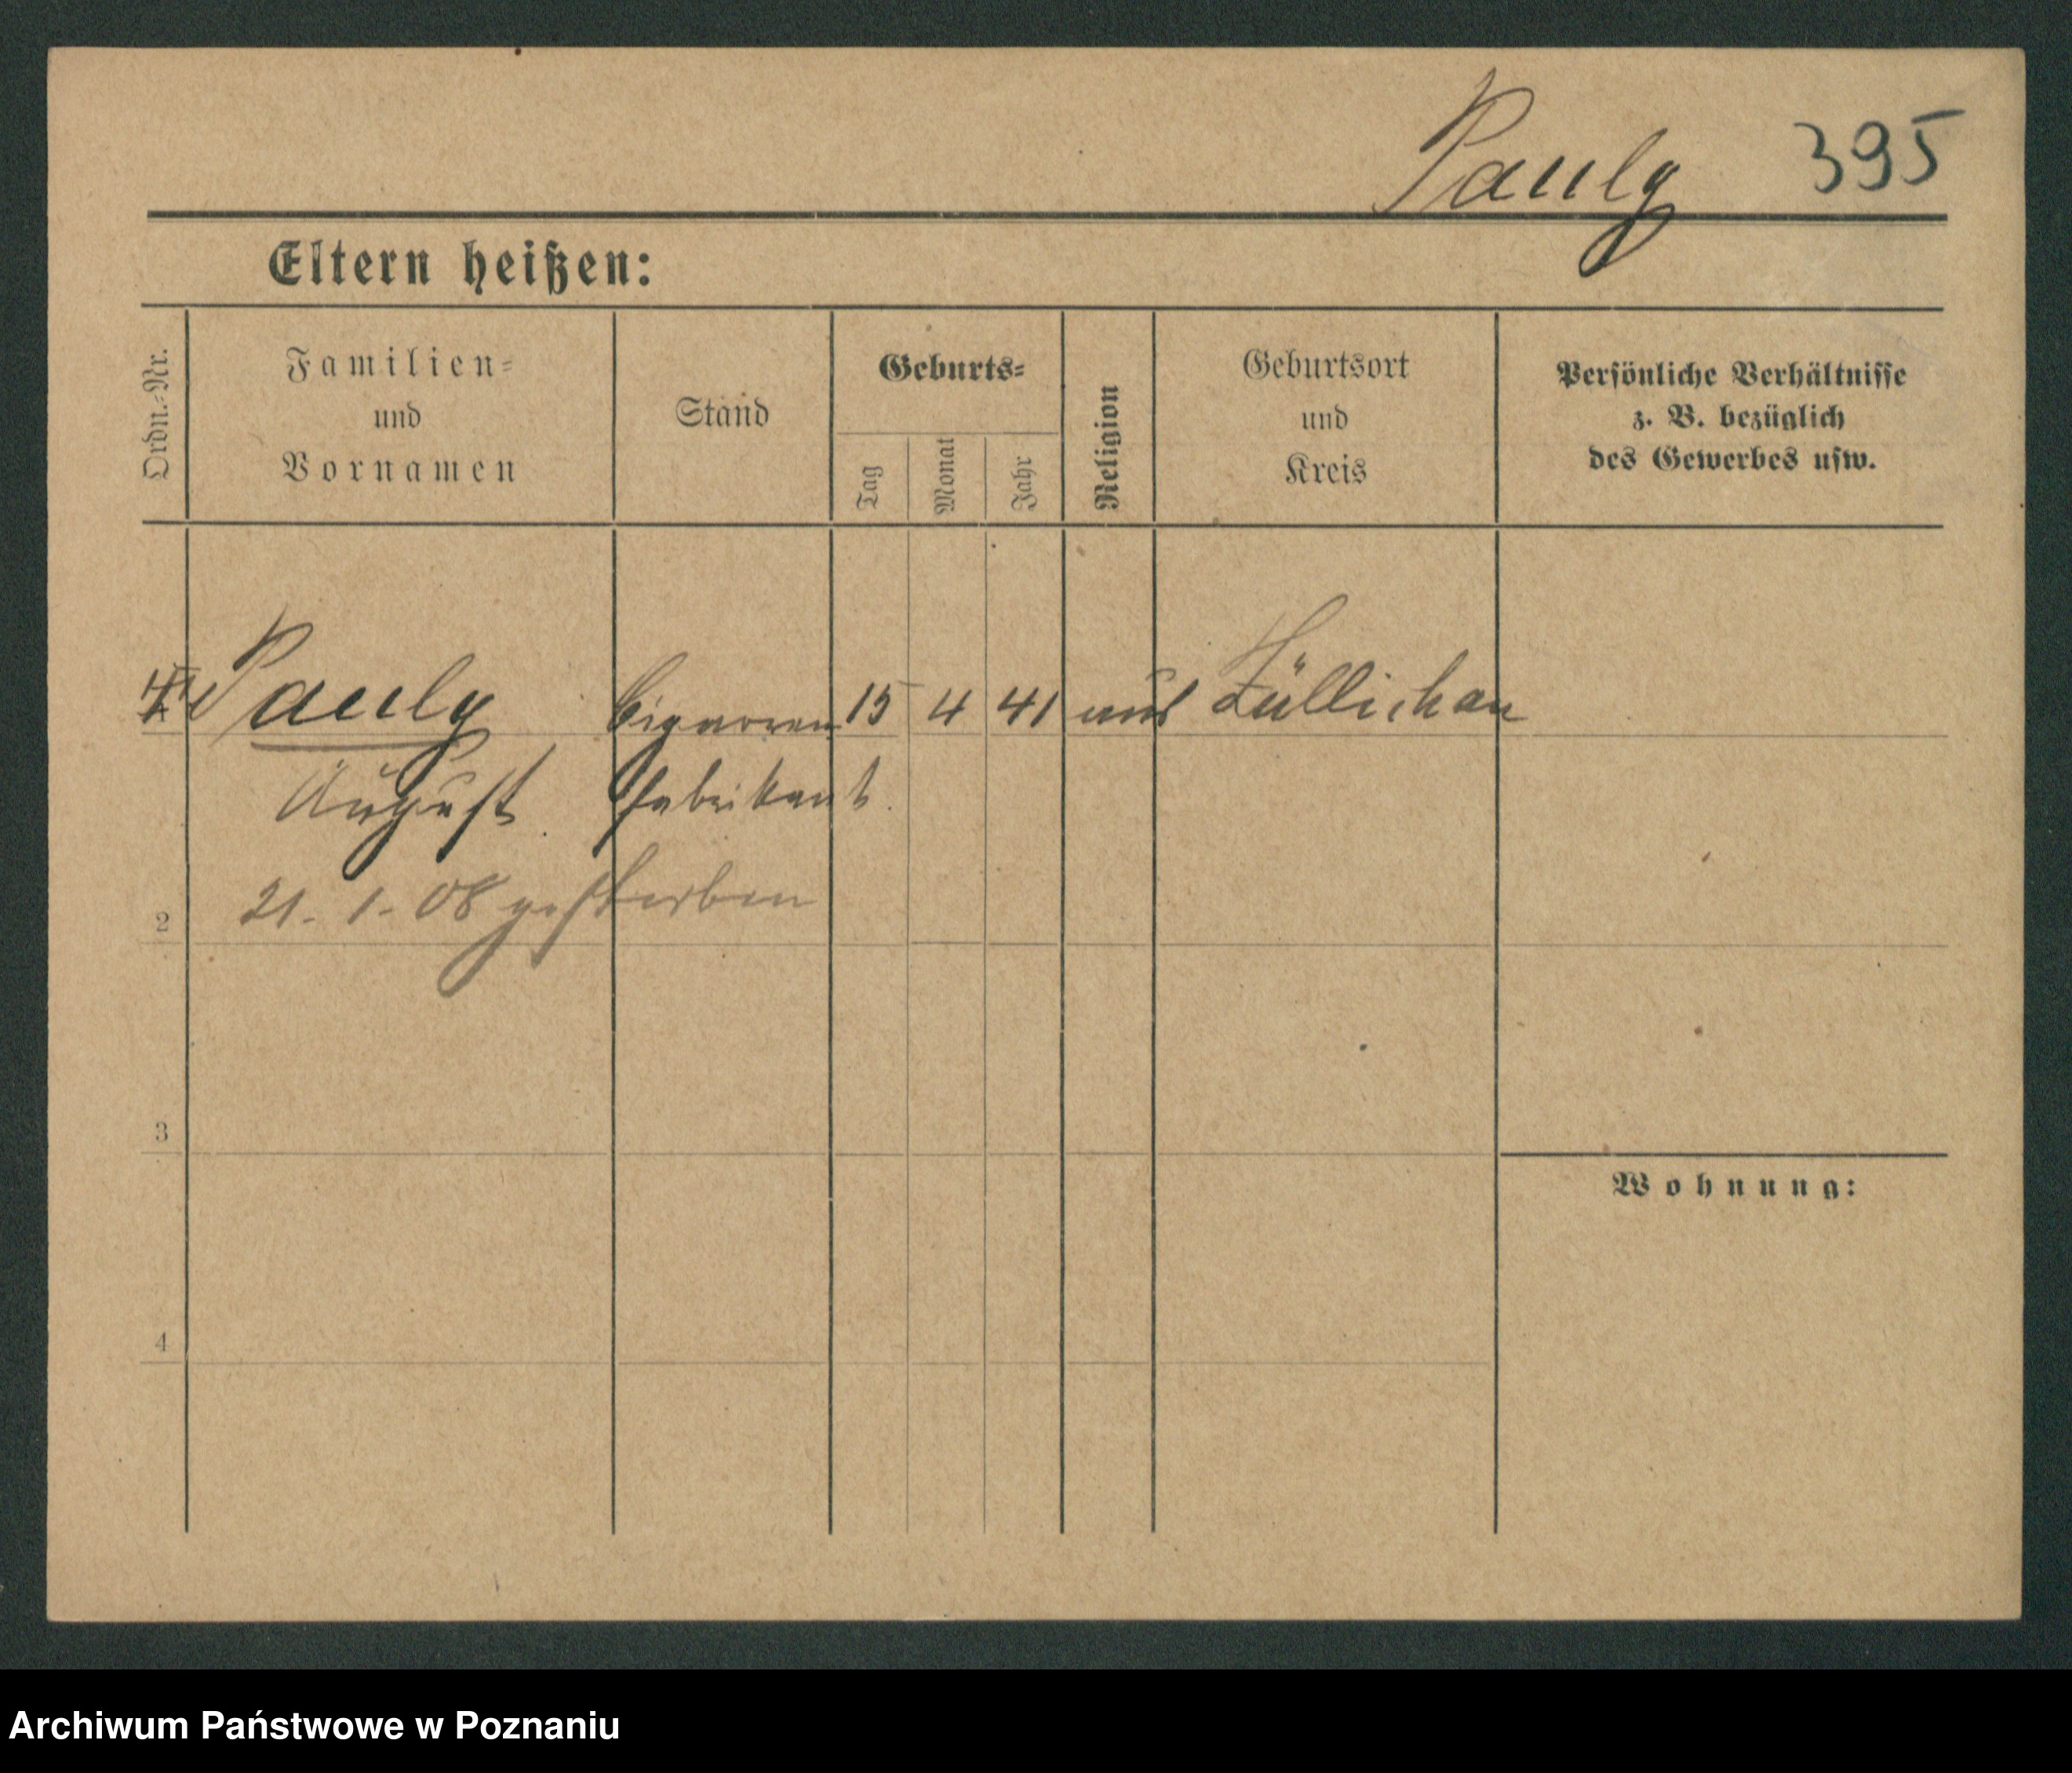 Pauly 395
Eltern heißen:
Ordn.-Nr.
Familien-
und
Vornamen
Stand
Geburts-
Tag
Monat
Jahr
Religion
Geburtsort
und
Kreis
Persönliche Verhältnisse
z. B. bezüglich
des Gewerbes usw.
Pauly Cigarren 15 4 41 Züllichau
August fabrikant.
21. 1. 08 gestorben
2
3
Wohnung:
4
Archiwum Państwowe w Poznaniu